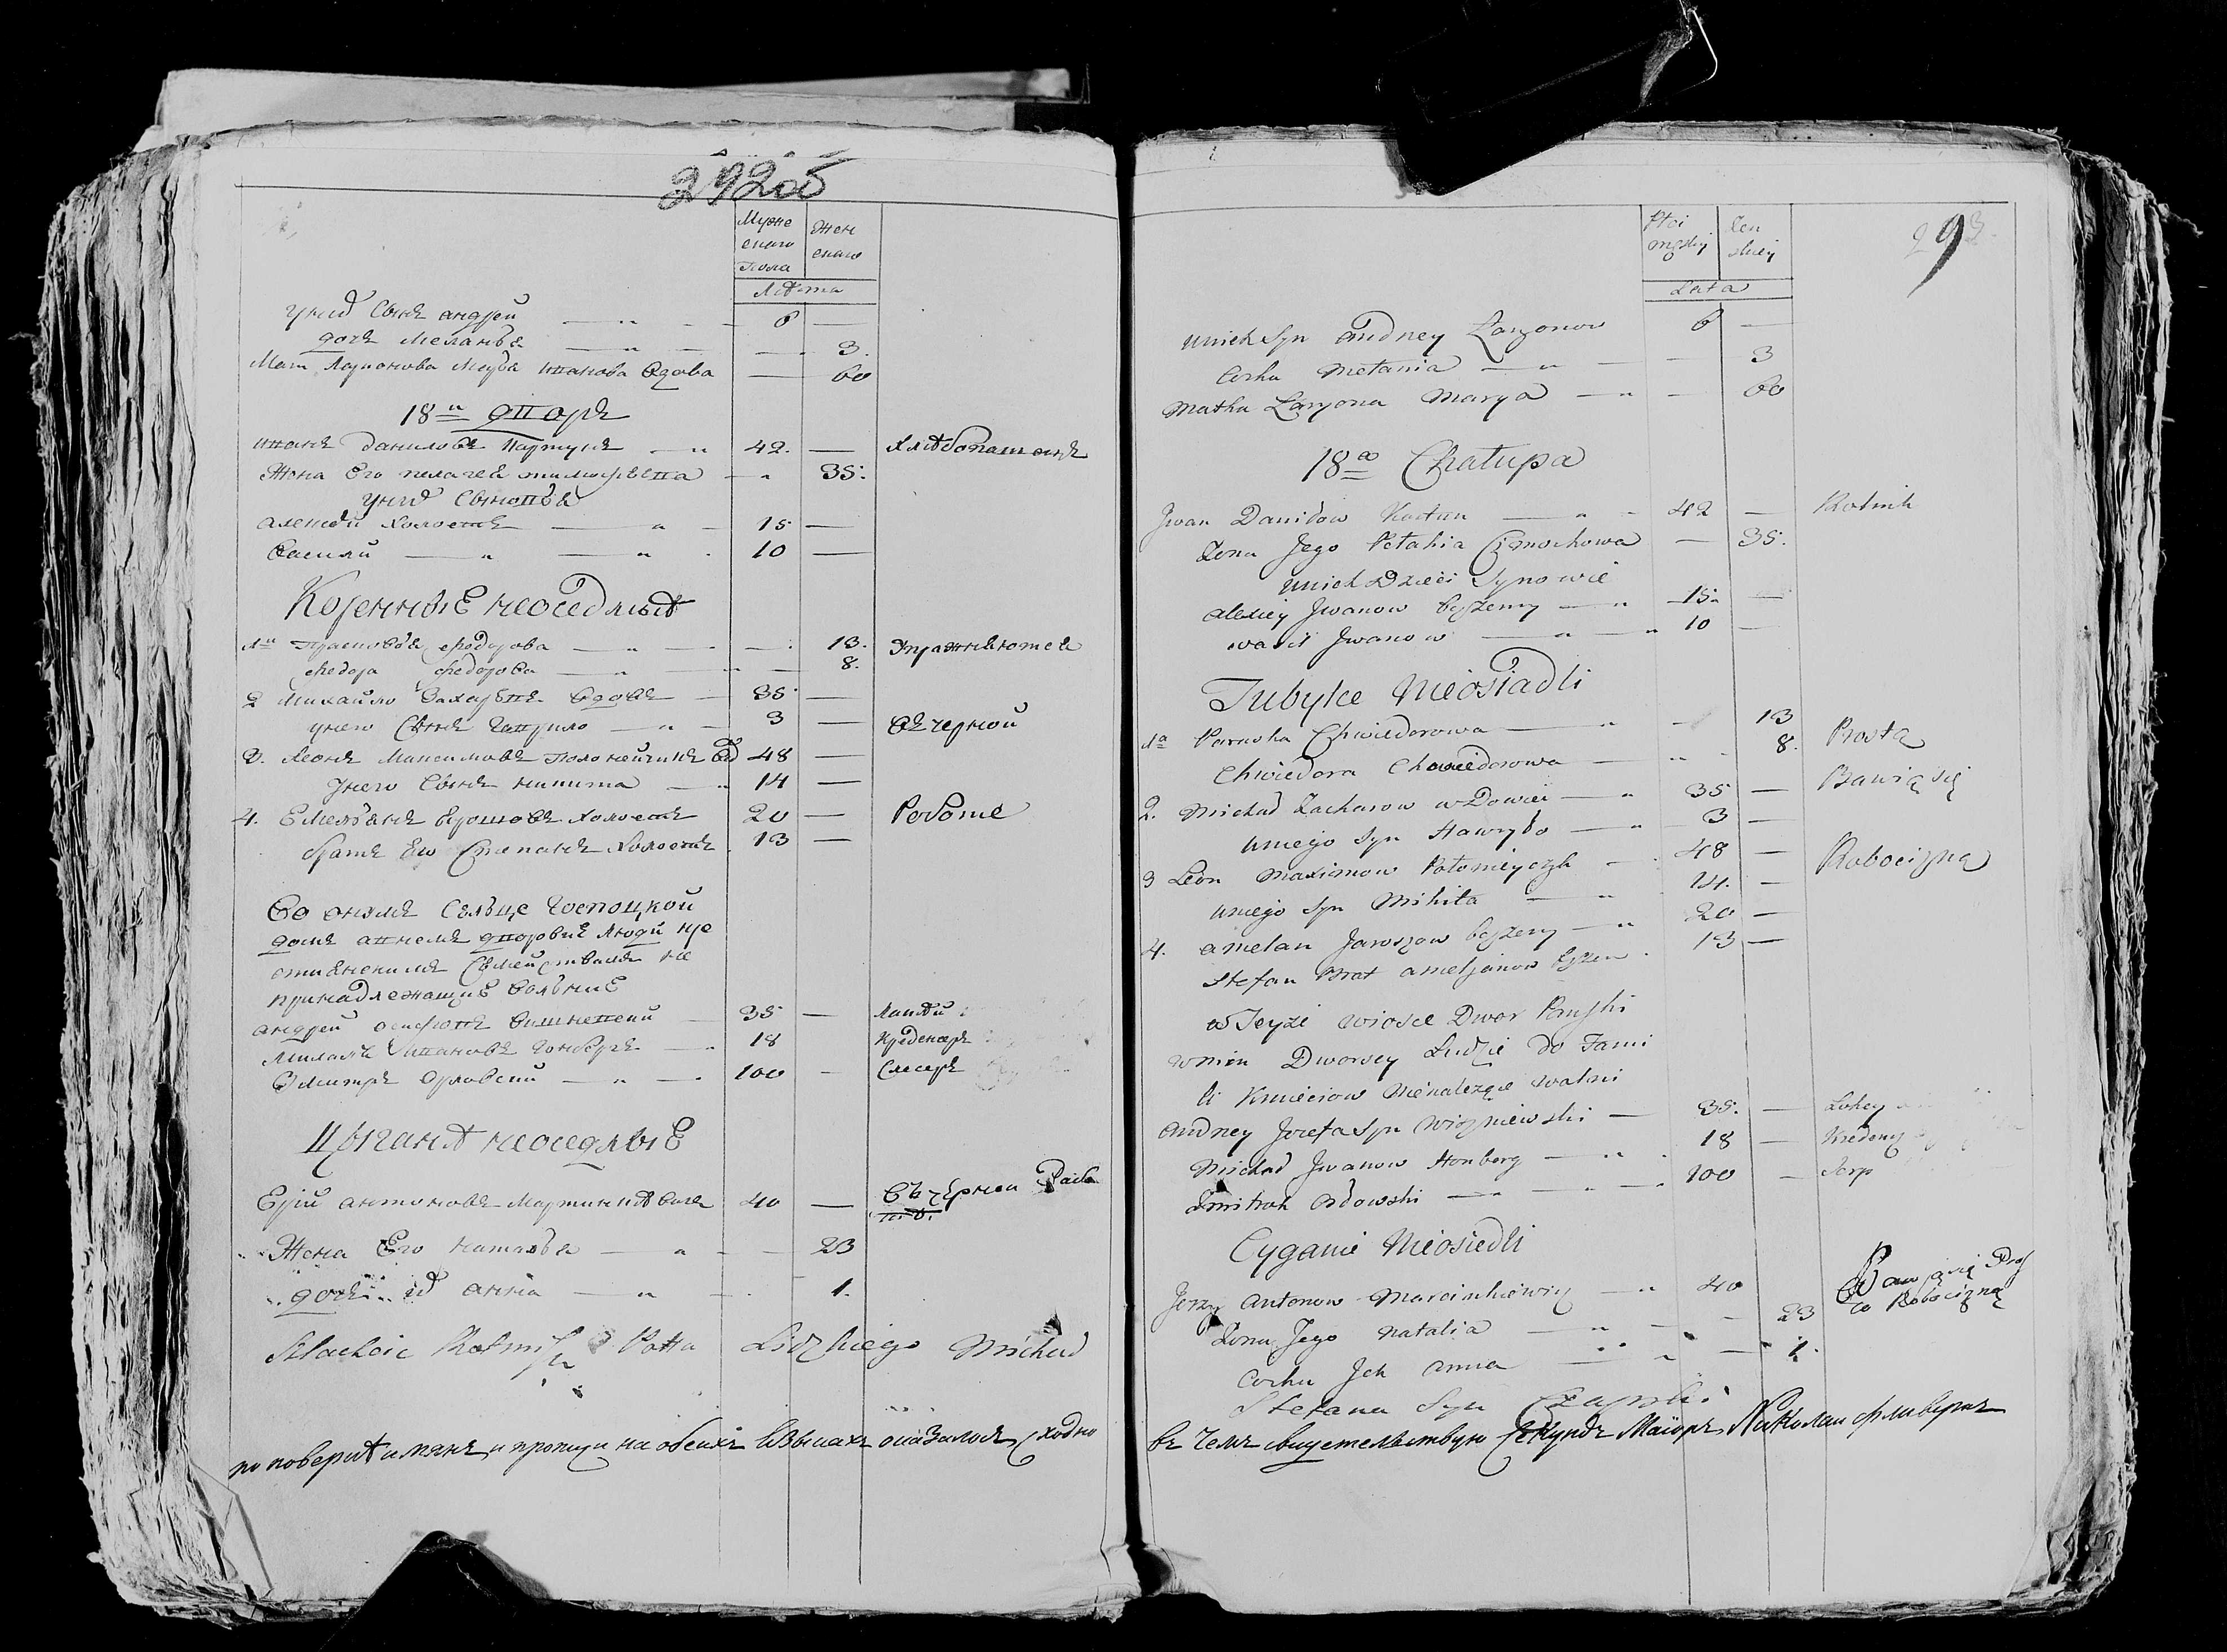 292об
Мужескаго Пола
Женскаго
Лѣта
унихъ Сынъ андрей 6 —
дочь Меланья — 3.
Мать Ларионова Марья Иванова вдова — 60
18й дворъ
иванъ даниловъ Картунъ 42. — хлѣбопашецъ
Жена Его пелагея тимофѣева — 35:
унихъ Сыновья
алексѣй холостъ 15 —
василий 10 —
Коренныѣ неоседлыѣ
1й Прасковья федорова — 13. Упражняютса
федора федорова — 8.
2 михайло Захарьевъ вдовъ 35 —
унего Сынъ Гаврило 3 — въ черной
3. Леонъ Максимовъ Полонейчикъ вд 48 —
Унего Сынъ никита 14 —
4. Емельянъ Ерошовъ холостъ 20 — Роботе
братъ Его Степанъ холостъ 13 —
Во ономъ Сельце Господкой
домъ авнемъ дворовыѣ люди кре
стьянскимъ Семействамъ не
принадлежащиѣ вольныѣ
андрей осиповъ вишневский 35 — Лакѣй
Михалъ Ивановъ Гонбергъ 18 Креденсеръ
Дмитръ орловский 100 - Слесарь
Цыганѣ неоседлыѣ
Ерiй антоновъ Мартинкѣвичь 40 — Въ черной Рабо
тѣ.
Жена Его наталья — 23
дочь ихъ анна 1.
Szlachcic Rotmistrz Pttu Lidzkiego Michał
по поверкѣ имянъ, и прописи на обеихъ языкахъ оказалось сходно
293
Płci męskiej
Żenskiey
Lata
unich Syn andrey Łaryonow 6 —
Corka Mełania — 3
Matka Łaryona Marya — 60
18a Chałupa
Jwan Daniłow Kartun 42 — Rolnik
Żona Jego Pełahia Cimochowa — 35.
unich Dzieci Synowie
alexiey Jwanow bezżenny 15 —
wasil Jwanow 10 —
Jubylce Nieosiadli
1a Paraska Chwiedorowa 13 Prostą
Chwiedora Chwiedorowa 8.
2. Michał Zacharow wDowiec 35 — Bawią się
uniego Syn Hawryło 3 —
3 Leon Maximow Połonieyczyk 48 — Robocizną
uniego Syn Mikita 14. —
4. amelan Jaroszow bezżeny 20 —
Stefan Brat ameljanow bezżen 13 —
wTeyże wiosce Dwor Panski
wnim Dworscy Ludzie do Fami
li Kmieciow Nienależące wolni
andrey Jozefa Syn Wiszniewski 35. — Lokey
Michał Jwanow Honberg 18 — Kredens
Dmitroh Orłowski 100 - Slosarz
Cyganie Nieosiedli
Jerzy Antonow Marcinkiewicz 40 Bawią się Pros
to Robocizną
Żona Jego Natalia 23
Corka Jch anna 1.
Stefana Syn Czapski
въ чемъ свидетельствую Секундъ Маiоръ Николаи